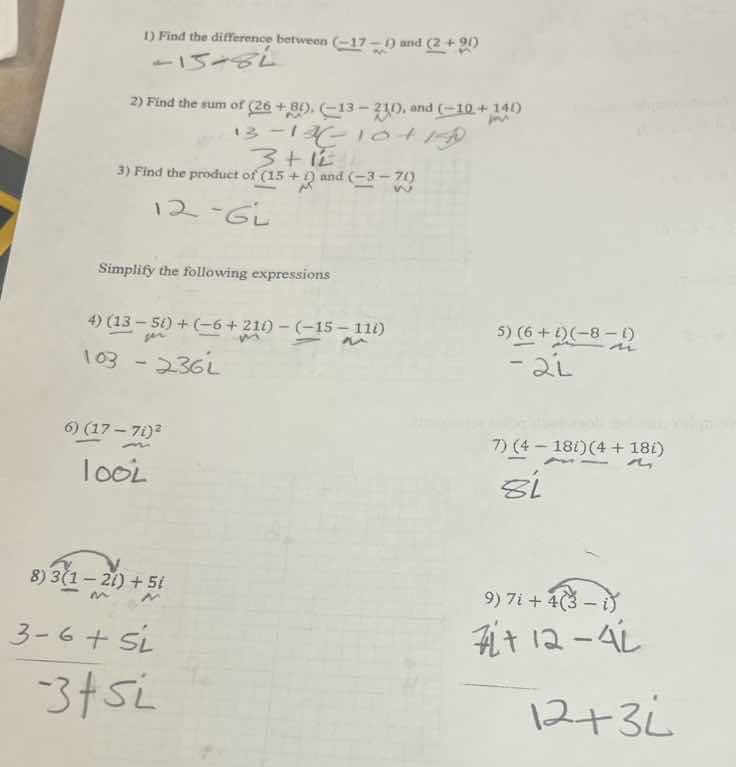 1) Find the difference between (−17 − i) and (2 + 9i)
-15 + 8i
2) Find the sum of (26 + 8i), (−13 − 21i), and (−10 + 14i)
13 - 13 - 10 + 14
3 + 1i
3) Find the product of (15 + i) and (−3 − 7i)
12 - 6i
Simplify the following expressions
4) (13 − 5i) + (−6 + 21i) − (−15 − 11i)
103 - 236i
5) (6 + i)(−8 − i)
- 2i
6) (17 − 7i)²
100i
7) (4 − 18i)(4 + 18i)
8i
8) 3(1 − 2i) + 5i
3 - 6 + 5i
-3 + 5i
9) 7i + 4(3 − i)
7i + 12 - 4i
12 + 3i